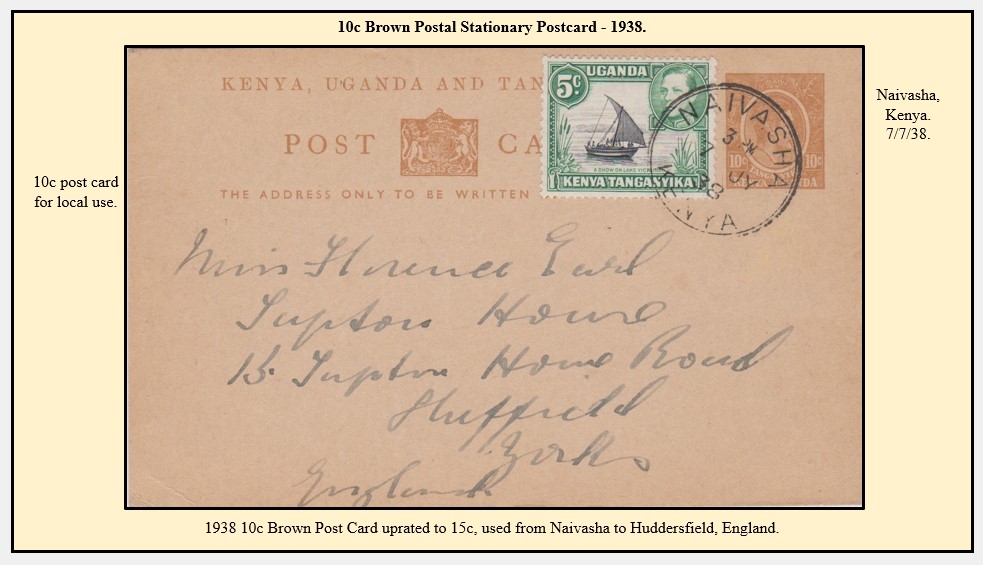 10c Brown Postal Stationary Postcard - 1938.
KENYA, UGANDA AND TAN
POST CA
THE ADDRESS ONLY TO BE WRITTEN
5c.
UGANDA
A DHOW ON LAKE VIC
KENYA TANGANYIKA
NAIVASHA
3 PM
7 JY
38
KENYA
10c 10c
Naivasha,
Kenya.
7/7/38.
10c post card
for local use.
Miss Florence Earl
Tupton House
15 Tupton House Road
Sheffield
Yorks
England
1938 10c Brown Post Card uprated to 15c, used from Naivasha to Huddersfield, England.